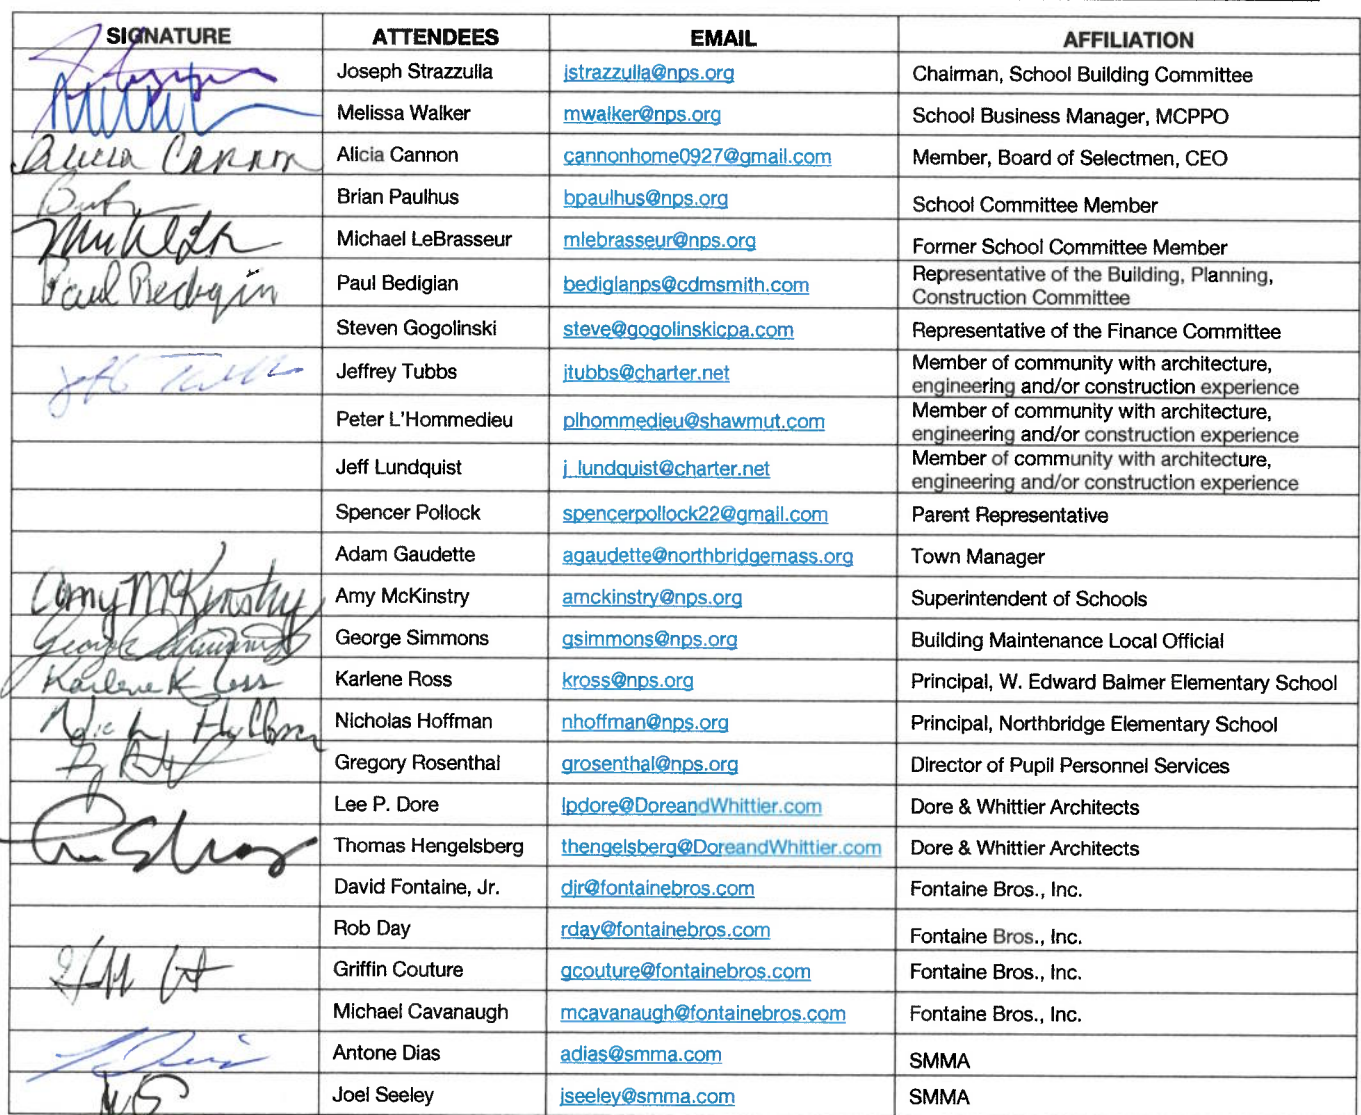 SIGNATURE ATTENDEES EMAIL AFFILIATION
Joseph Strazzulla jstrazzulla@nps.org Chairman, School Building Committee
Melissa Walker mwalker@nps.org School Business Manager, MCPPO
Alicia Cannon Alicia Cannon cannonhome0927@gmail.com Member, Board of Selectmen, CEO
Brian Paulhus bpaulhus@nps.org School Committee Member
Michael LeBrasseur mlebrasseur@nps.org Former School Committee Member
Paul Bedigian Paul Bedigian bedigianps@cdmsmith.com Representative of the Building, Planning,
Construction Committee
Steven Gogolinski steve@gogolinskicpa.com Representative of the Finance Committee
Jeffrey Tubbs jtubbs@charter.net Member of community with architecture,
engineering and/or construction experience
Peter L'Hommedieu plhommedieu@shawmut.com Member of community with architecture,
engineering and/or construction experience
Jeff Lundquist j_lundquist@charter.net Member of community with architecture,
engineering and/or construction experience
Spencer Pollock spencerpollock22@gmail.com Parent Representative
Adam Gaudette agaudette@northbridgemass.org Town Manager
Amy McKinstry Amy McKinstry amckinstry@nps.org Superintendent of Schools
George Simmons gsimmons@nps.org Building Maintenance Local Official
Karlene K Ross Karlene Ross kross@nps.org Principal, W. Edward Balmer Elementary School
Nicholas Hoffman nhoffman@nps.org Principal, Northbridge Elementary School
Gregory Rosenthal grosenthal@nps.org Director of Pupil Personnel Services
Lee P. Dore lpdore@DoreandWhittier.com Dore & Whittier Architects
Thomas Hengelsberg thengelsberg@DoreandWhittier.com Dore & Whittier Architects
David Fontaine, Jr. djr@fontainebros.com Fontaine Bros., Inc.
Rob Day rday@fontainebros.com Fontaine Bros., Inc.
Griffin Couture gcouture@fontainebros.com Fontaine Bros., Inc.
Michael Cavanaugh mcavanaugh@fontainebros.com Fontaine Bros., Inc.
Antone Dias adias@smma.com SMMA
Joel Seeley jseeley@smma.com SMMA